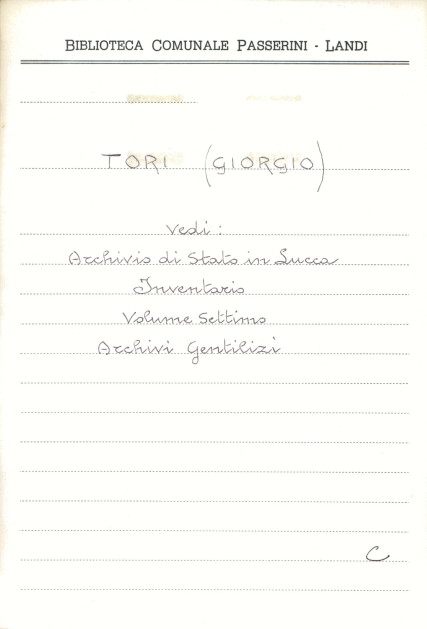 BIBLIOTECA COMUNALE PASSERINI - LANDI
TORI (GIORGIO)
Vedi :
Archivio di Stato in Lucca
Inventario
Volume Settimo
Archivi Gentilizi
C